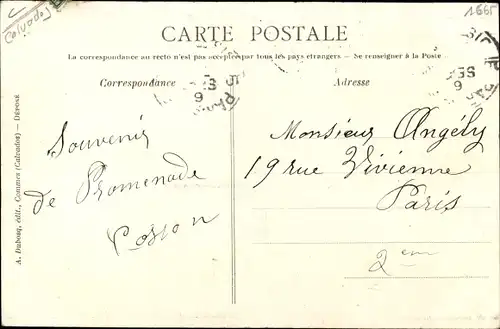 Calvados
1665
CARTE POSTALE
La correspondance au recto n'est pas acceptée par tous les pays étrangers — Se renseigner à la Poste
Correspondance
Adresse
Souvenir
de Promenade
Monsieur Angély
19 rue Vivienne
Paris
2em
A. Dubosq, édit., Commes (Calvados) — DÉPOSÉ